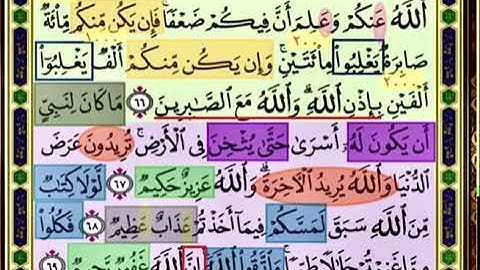 ٱللَّهُ عَنكُمْ وَعَلِمَ أَنَّ فِيكُمْ ضَعْفًا ۚ فَإِن يَكُن مِّنكُم مِّا۟ئَةٌ
١٠٠
صَابِرَةٌ يَغْلِبُوا۟ مِا۟ئَتَيْنِ ۚ وَإِن يَكُن مِّنكُمْ أَلْفٌ يَغْلِبُوٓا۟
٢٠٠
أَلْفَيْنِ بِإِذْنِ ٱللَّهِ ۗ وَٱللَّهُ مَعَ ٱلصَّـٰبِرِينَ ٦٦ مَا كَانَ لِنَبِىٍّ
أَن يَكُونَ لَهُۥٓ أَسْرَىٰ حَتَّىٰ يُثْخِنَ فِى ٱلْأَرْضِ ۚ تُرِيدُونَ عَرَضَ
ٱلدُّنْيَا وَٱللَّهُ يُرِيدُ ٱلْـَٔاخِرَةَ ۗ وَٱللَّهُ عَزِيزٌ حَكِيمٌ ٦٧ لَّوْلَا كِتَـٰبٌ
مِّنَ ٱللَّهِ سَبَقَ لَمَسَّكُمْ فِيمَآ أَخَذْتُمْ عَذَابٌ عَظِيمٌ ٦٨ فَكُلُوا۟
مِمَّا غَنِمْتُمْ حَلَـٰلًا طَيِّبًا ۚ وَٱتَّقُوا۟ ٱللَّهَ ۚ إِنَّ ٱللَّهَ غَفُورٌ رَّحِيمٌ ٦٩